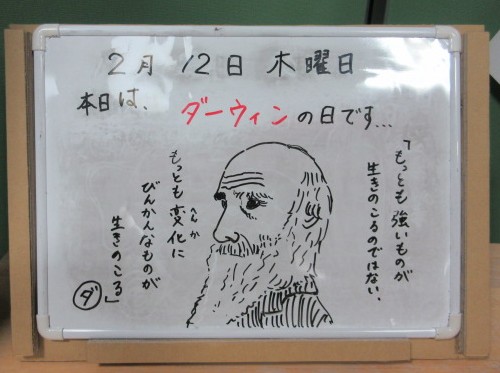 2月 12日 木曜日
本日は、
ダーウィンの日です...
「もっとも強いものが
生きのこるのではない。
もっとも変化に
へんか
びんかんなものが
生きのこる」
ダ